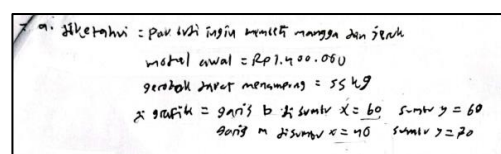 7 a. diketahui = Pak Budi ingin membeli mangga dan jeruk
modal awal = Rp1.400.000
gerobak dapat menampung = 55 kg
x grafik = garis b di sumbu x = 60 sumbu y = 60
garis m di sumbu x = 40 sumbu y = 70